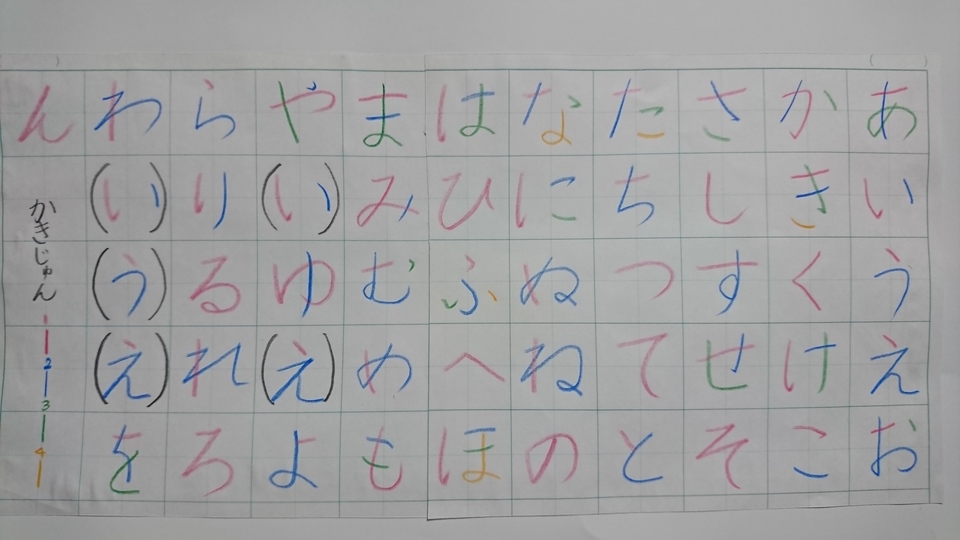 あいうえお
かきくけこ
さしすせそ
たちつてと
なにぬねの
はひふへほ
まみむめも
や(い)ゆ(え)よ
らりるれろ
わ(い)(う)(え)を
ん
かきじゅん
1
2
3
4